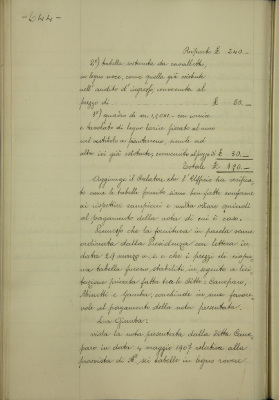 -644-
Riporto £ 240.-
2°) tabella sostenuta da cavalletto,
in legno noce, come quella già esistente
nell'androne d'ingresso, convenuta al
prezzo di £ 50.-
1°) quadro di m. con cornice
e tavolato di legno larice fissato al muro
nel vestibolo a pianterreno, simile ad
altro ivi già esistente, convenuto al prezzo di £ 90.-
Totale £
Aggiunge il Relatore che l'Ufficio ha verifica-
to come le tabelle fornite siano ben fatte conformi
ai rispettivi campioni e nulla ostare quindi
al pagamento della nota di cui è caso.
che la fornitura in parola venne
ordinata dalla Presidenza con lettera in
data 29 marzo e che i prezzi di
tabella furono stabiliti in seguito a lici-
tazione privata fatta tra le Ditte: Camparo,
e Gambar, conchiude in senso favore-
vole al pagamento della nota presentata.
La Giunta:
vista la nota presentata dalla Ditta Cam-
paro in data 4 maggio 1907 relativa alla
provvista di N. sei tabelle in legno rovere